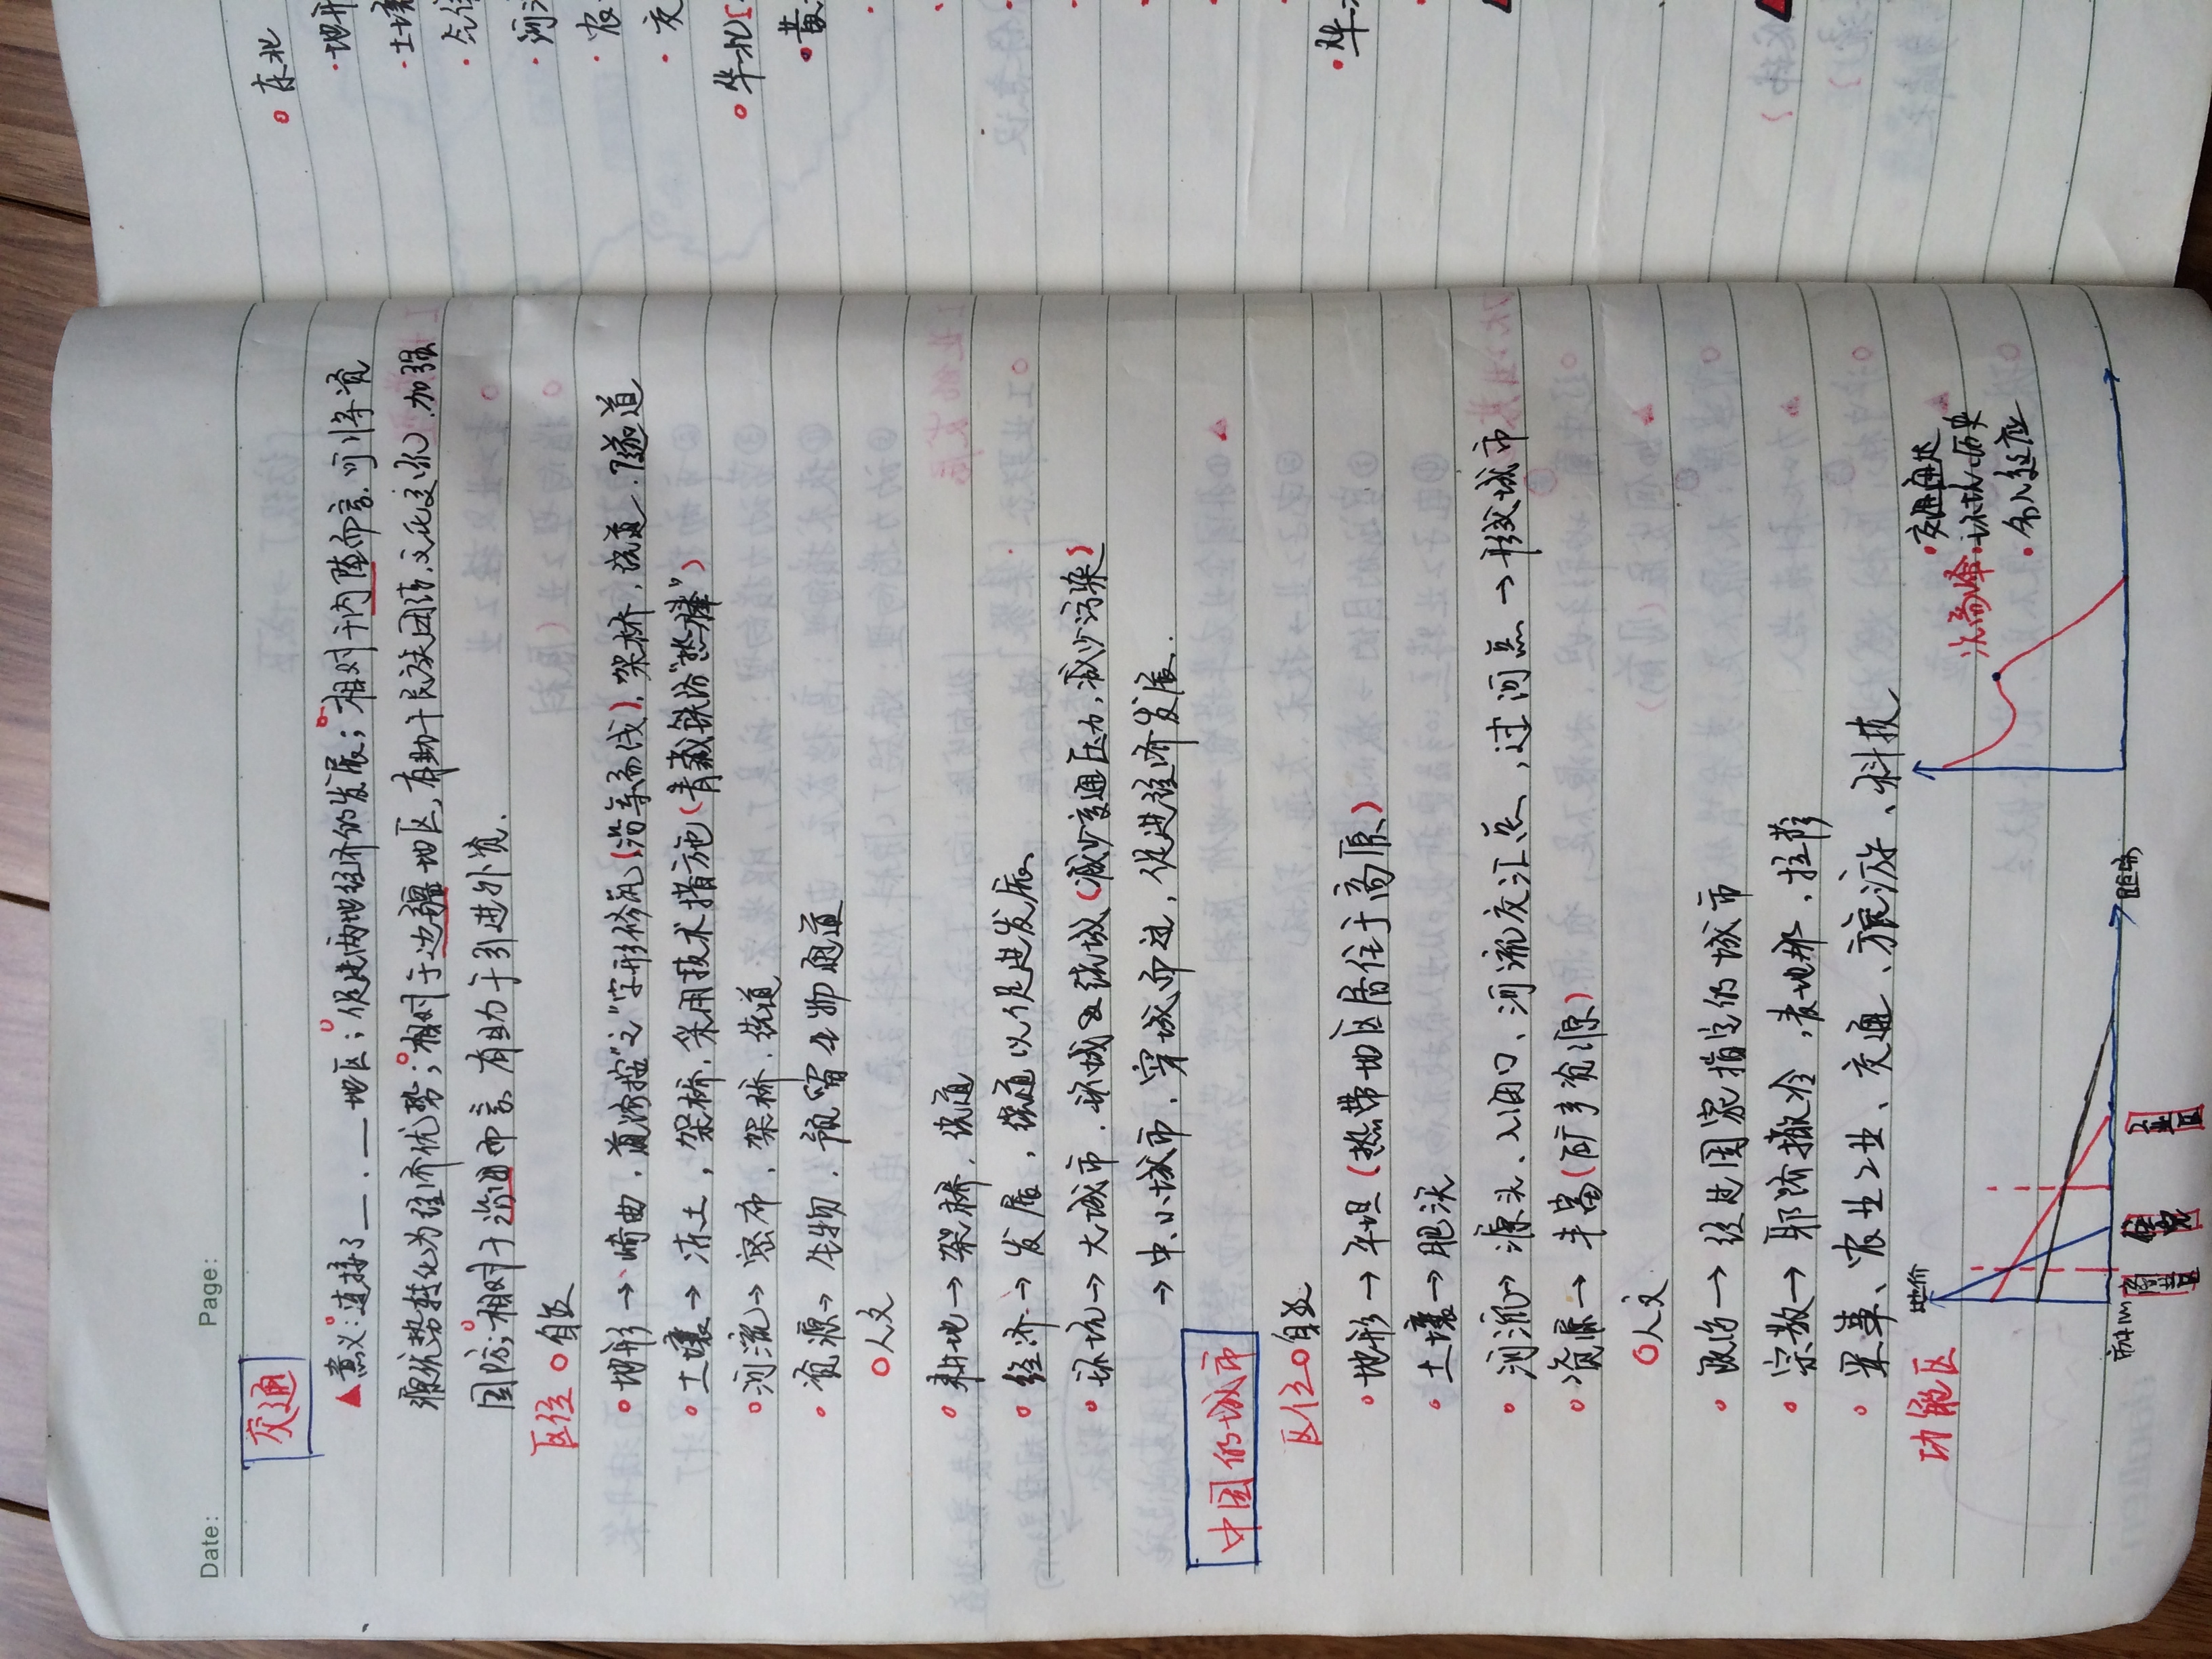 Date: Page:
交通
▲意义:连接了__、__地区;促进两地经济的发展;相对于内陆而言,可将资
源优势转化为经济优势;相对于边疆地区,有助于民族团结,文化交流,加强
国防;相对于沿海而言,有助于引进外资.
区位 自然
地形→崎曲,道路按"之"字形修筑(沿等高线),架桥,绕道,隧道
土壤→冻土,架桥,采用技术措施(青藏铁路"热棒")
河流→密布,架桥,绕道
资源→生物,预留生物通道
人文
耕地→架桥,绕道
经济→发展,绕道以促进发展
环境→大城市,环城及绕城(减少交通压力,减少污染)
→中、小城市,穿城而过,促进经济发展.
中国的城市
区位 自然
地形→平坦(热带地区居住于高原)
土壤→肥沃
河流→源头、入海口、河流交汇点,过河点→形成城市
资源→丰富(矿产资源)
人文
政治→经过国家指定的城市
宗教→耶路撒冷,麦地那,拉萨
军事、农业工业、交通、旅游、科技
功能区
地价
市中心
距离
商业区
住宅
工业区
次高峰
交通通达
环境、历史
名人效应
东北
地形
土壤
河流
农
交
华北
黄